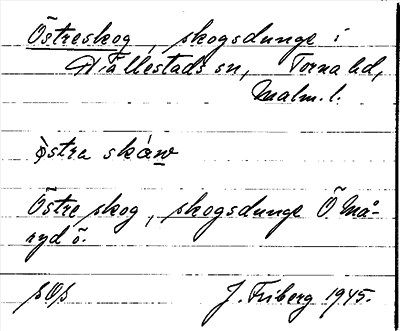 Östreskog, skogsdunge i
Hällestads sn, Torna hd,
Malm. l.
östra skáw
Östre skog, skogsdunge Ö. Må-
ryd ö.
J. Friberg 1945.